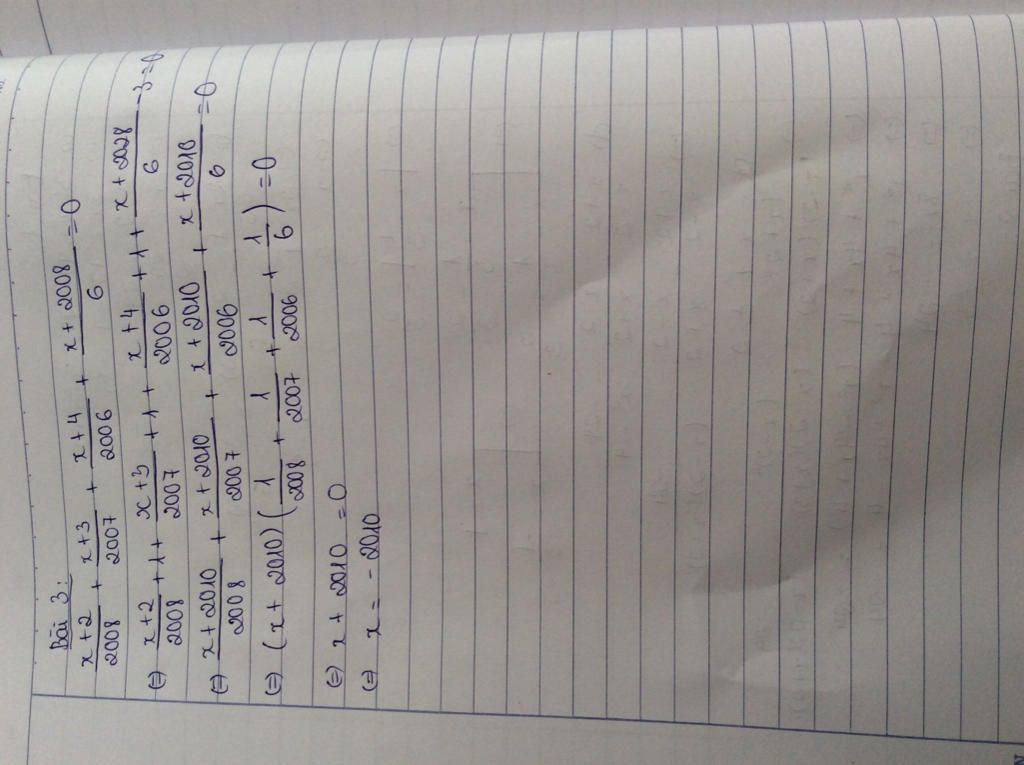 Bài 3:
x+2/2008 + x+3/2007 + x+4/2006 + x+2008/6 = 0
(=) x+2/2008 + 1 + x+3/2007 + 1 + x+4/2006 + 1 + x+2028/6 - 3 = 0
(=) x+2010/2008 + x+2010/2007 + x+2010/2006 + x+2010/6 = 0
(=) (x+2010)(1/2008 + 1/2007 + 1/2006 + 1/6) = 0
(=) x+2010 = 0
(=) x = -2010